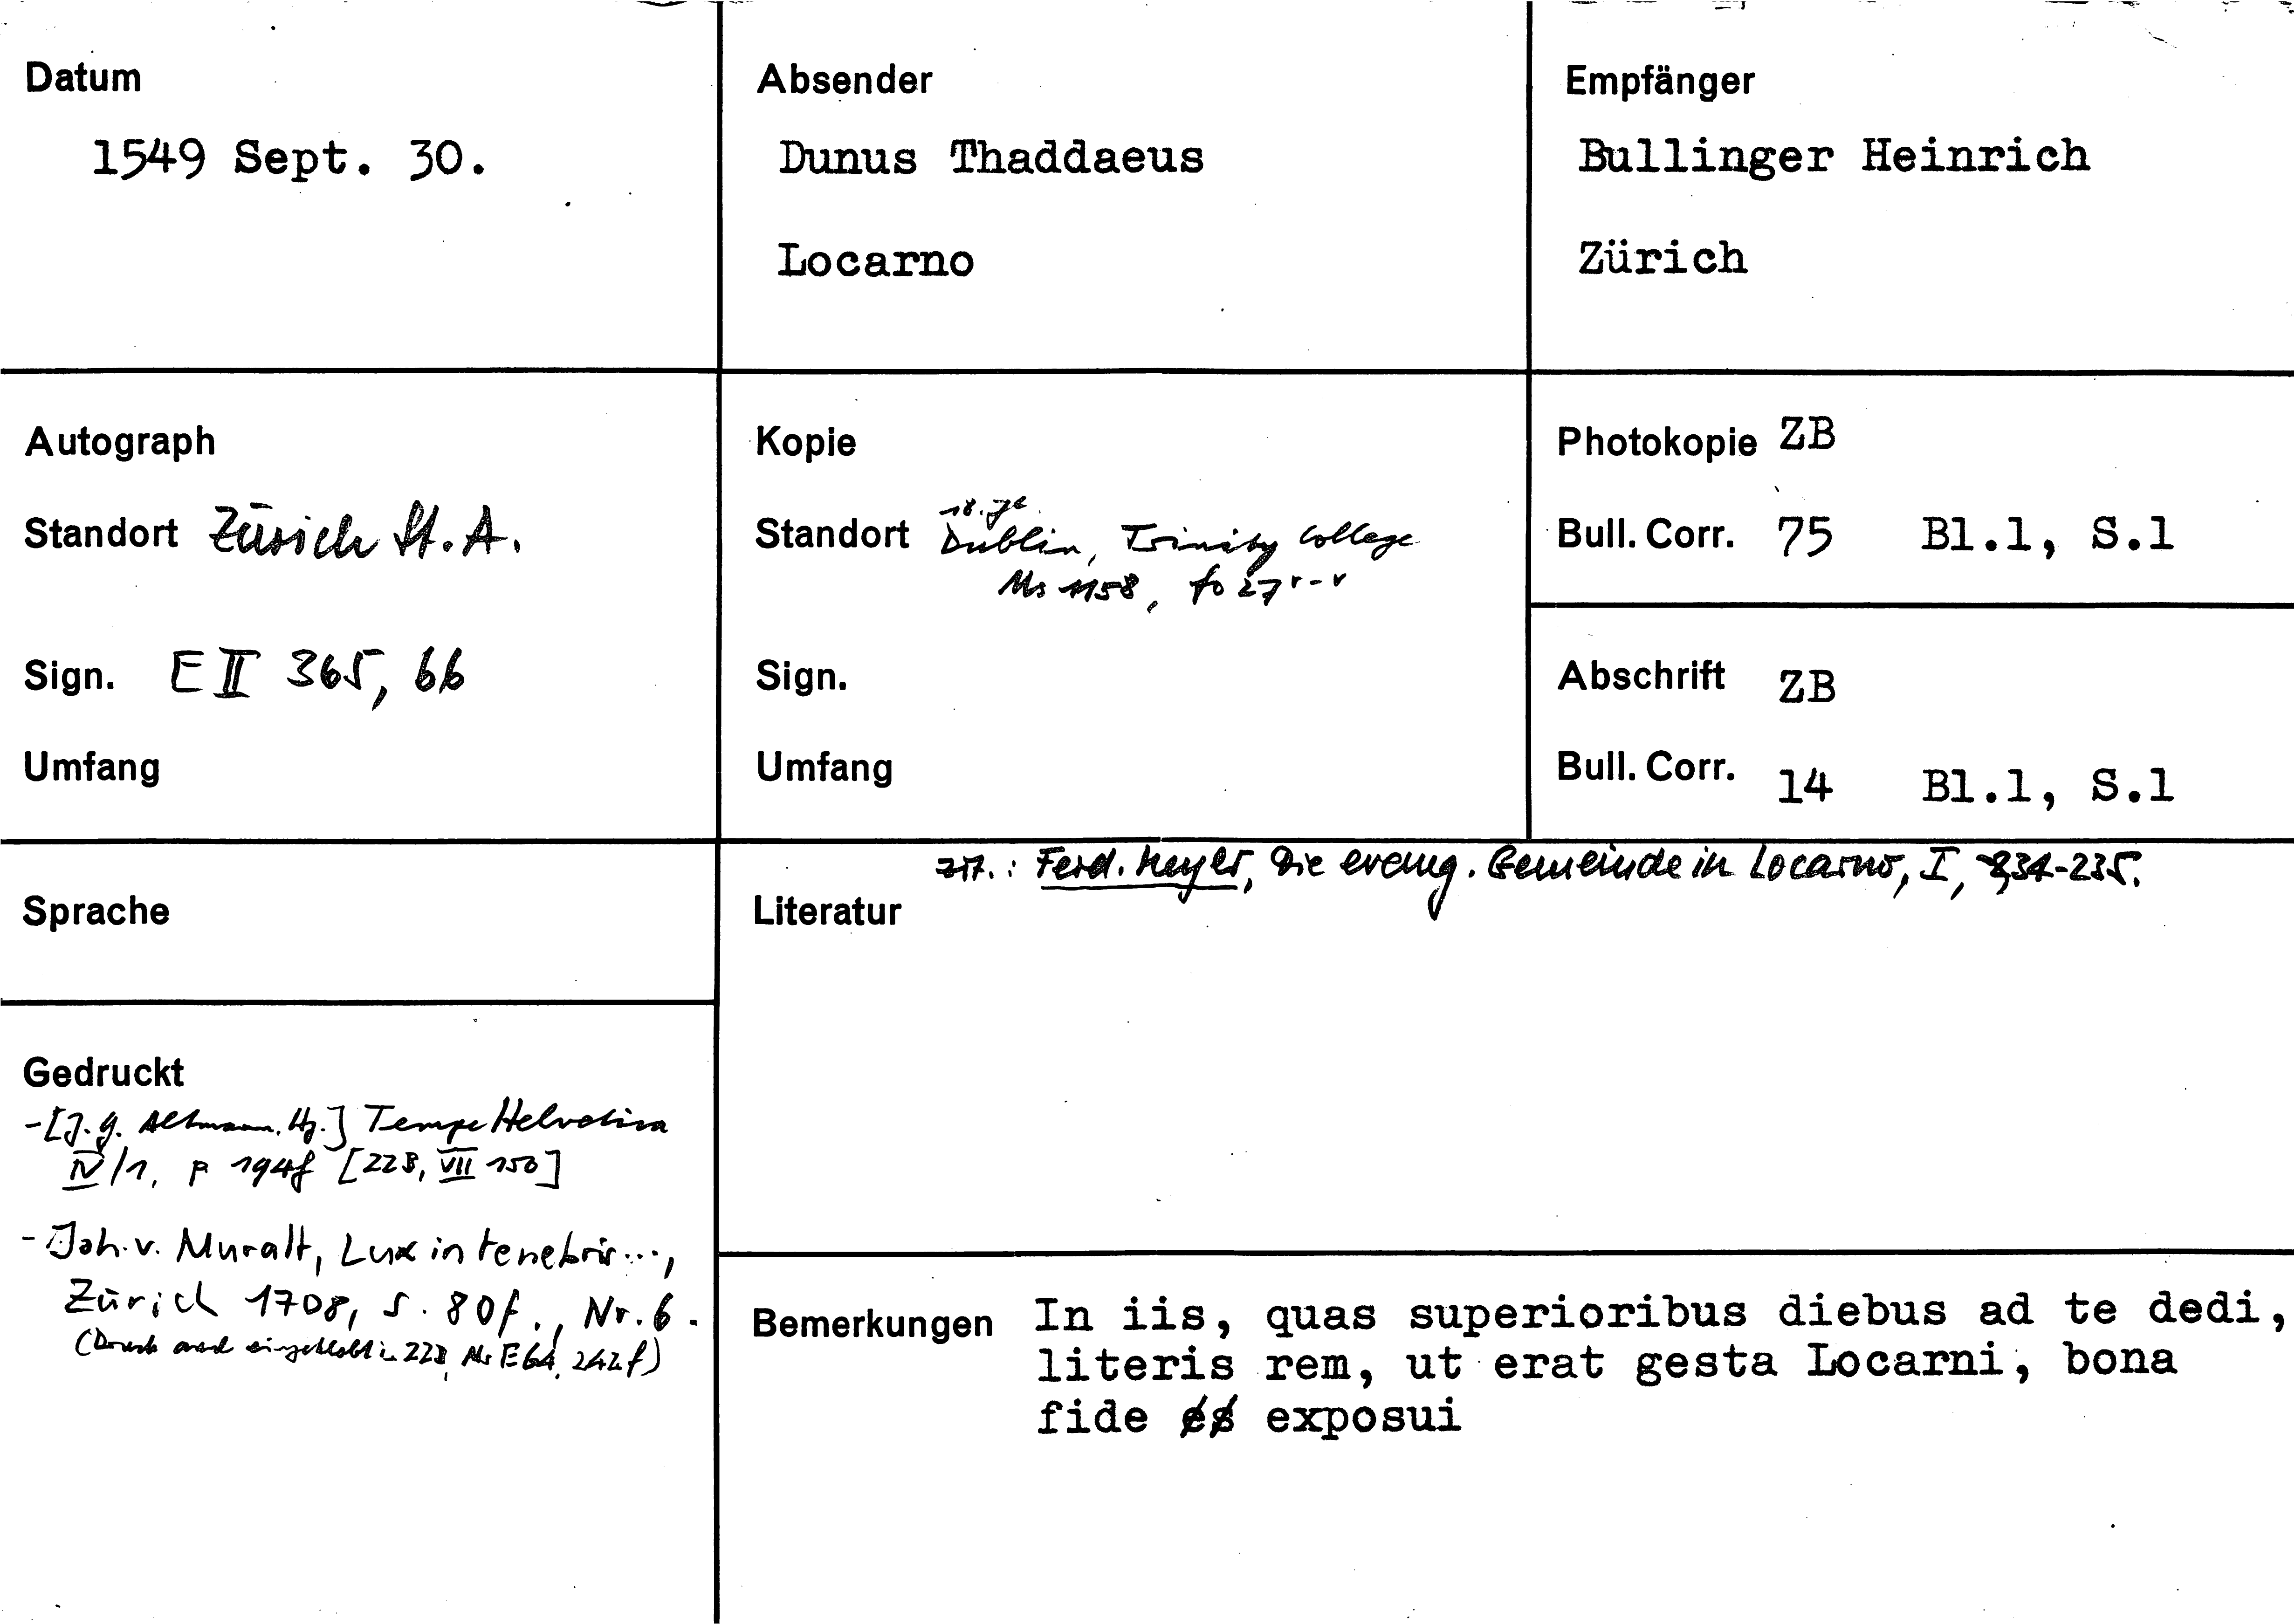 Datum
1549 Sept. 30.
Absender
Dunus Thaddaeus
Locarno
Empfänger
Bullinger Heinrich
Zürich
Autograph
Standort Zürich St.A.
Sign. E II 365, 66
Umfang
Kopie
18. Jh
Standort Dublin, Trinity College
Ms 1158, fo 27 r-v
Sign.
Umfang
Photokopie ZB
Bull. Corr. 75 Bl.1, S.1
Abschrift ZB
Bull. Corr. 14 Bl.1, S.1
Sprache
zit.: Ferd. Meyer, Die evang. Gemeinde in Locarno, I, 234-235.
Literatur
Gedruckt
-[J.G. Altmann, Hg.] Tempe Helvetica
IV/1, p 194f [ZZB, VII 150]
- Joh. v. Muralt, Lux in tenebris...,
Zürich 1708, S. 80f., Nr. 6.
(Druck auch eingeklebt in ZZB, Ms E 64, 242f)
Bemerkungen In iis, quas superioribus diebus ad te dedi,
literis rem, ut erat gesta Locarni, bona
fide es exposui